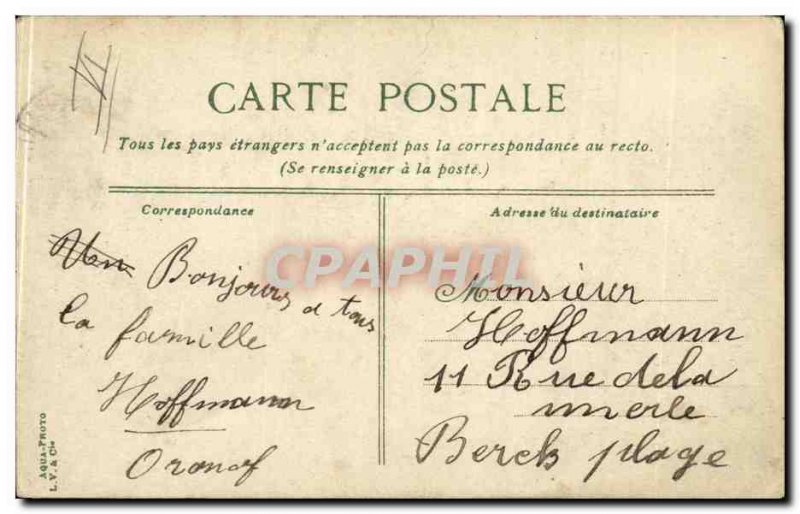 VI
CARTE POSTALE
Tous les pays étrangers n'acceptent pas la correspondance au recto.
(Se renseigner à la poste.)
Correspondance
Bonjours a tous
la famille
Hoffmann
Adresse du destinataire
Monsieur
Hoffmann
11 Rue dela
merle
Berck plage
AQUA-PHOTO
L.V. & Cie
CPAPHIL